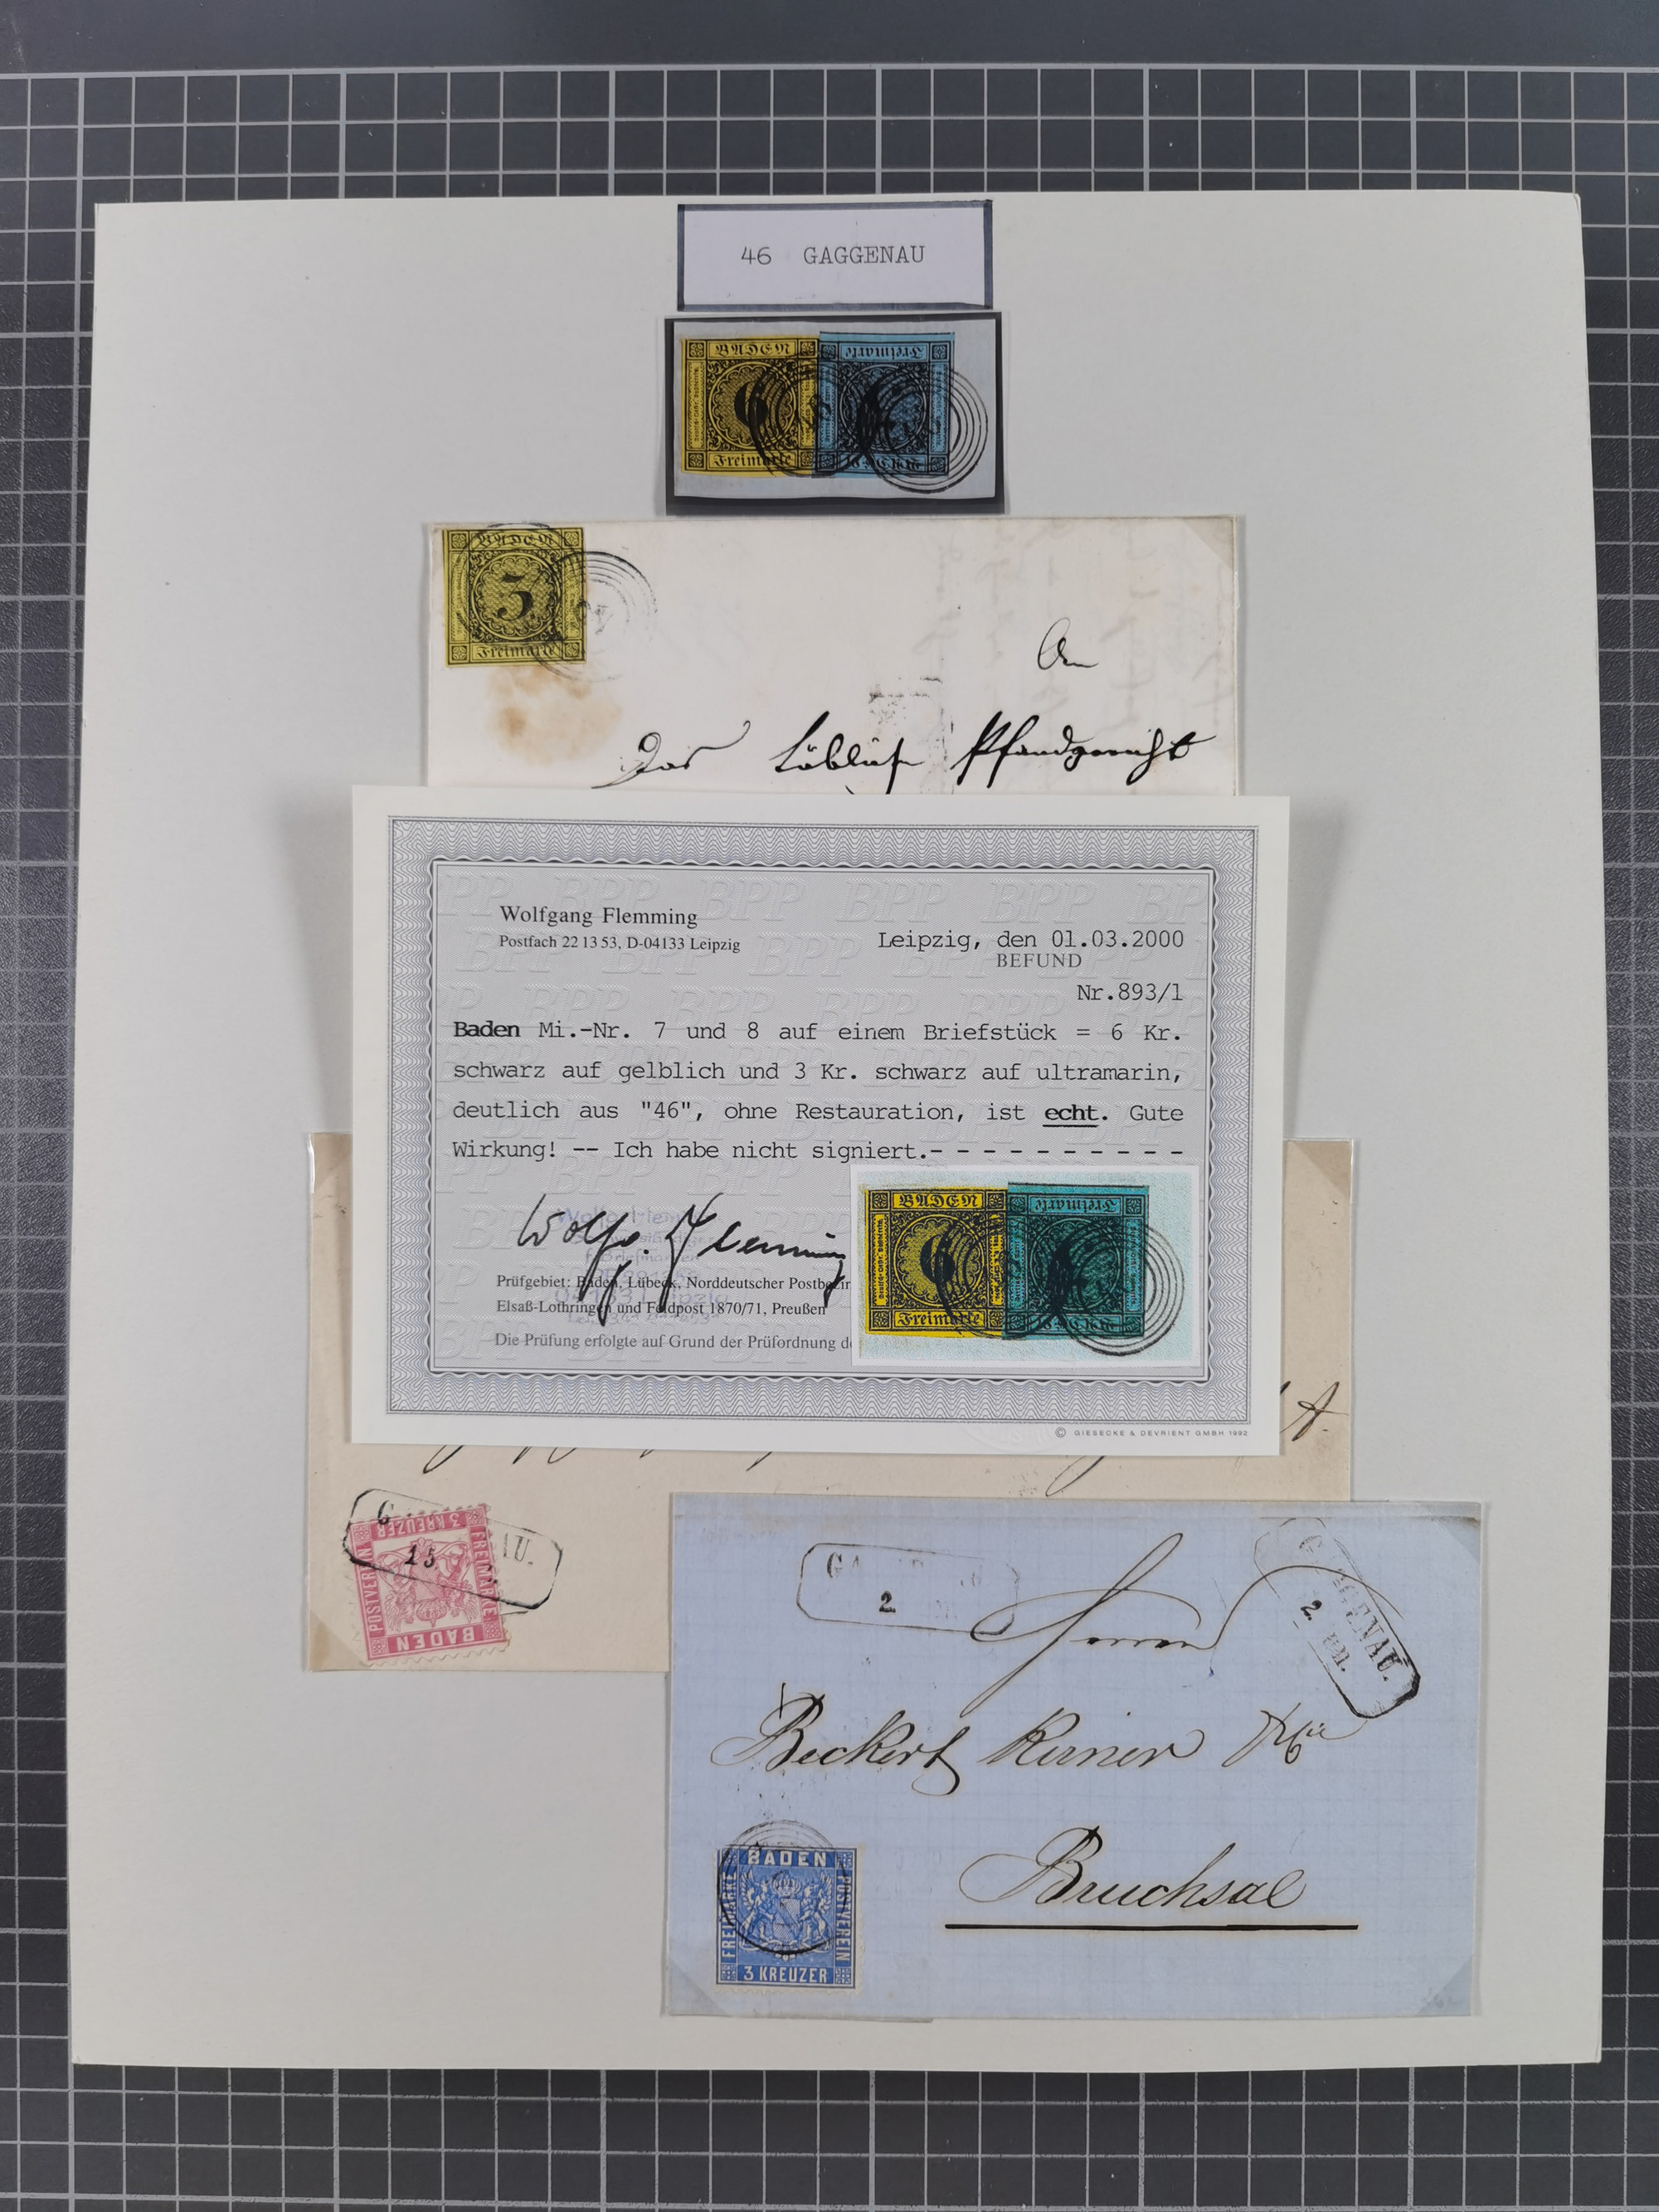 46 GAGGENAU
BADEN
6
Freimarke
Freimarke
BADEN
3
Freimarke
An
Das Löbliche Pfandgericht
Wolfgang Flemming
Postfach 22 13 53, D-04133 Leipzig
Leipzig, den 01.03.2000
BEFUND
Nr.893/1
Baden Mi.-Nr. 7 und 8 auf einem Briefstück = 6 Kr.
schwarz auf gelblich und 3 Kr. schwarz auf ultramarin,
deutlich aus "46", ohne Restauration, ist echt. Gute
Wirkung! -- Ich habe nicht signiert.- - - - - - - - - - -
Wolfg. Flemming
Prüfgebiet: Baden, Lübeck, Norddeutscher Postbezir
Elsaß-Lothringen und Feldpost 1870/71, Preußen
Die Prüfung erfolgte auf Grund der Prüfordnung de
BADEN
6
Freimarke
Freimarke
© GIESECKE & DEVRIENT GMBH 1992
3 KREUZER
FREIMARKE
POSTVEREIN
BADEN
15
2.
GAGGENAU.
2.
Herren
Beckert
Bruchsal
BADEN
FREIMARKE
POSTVEREIN
3 KREUZER